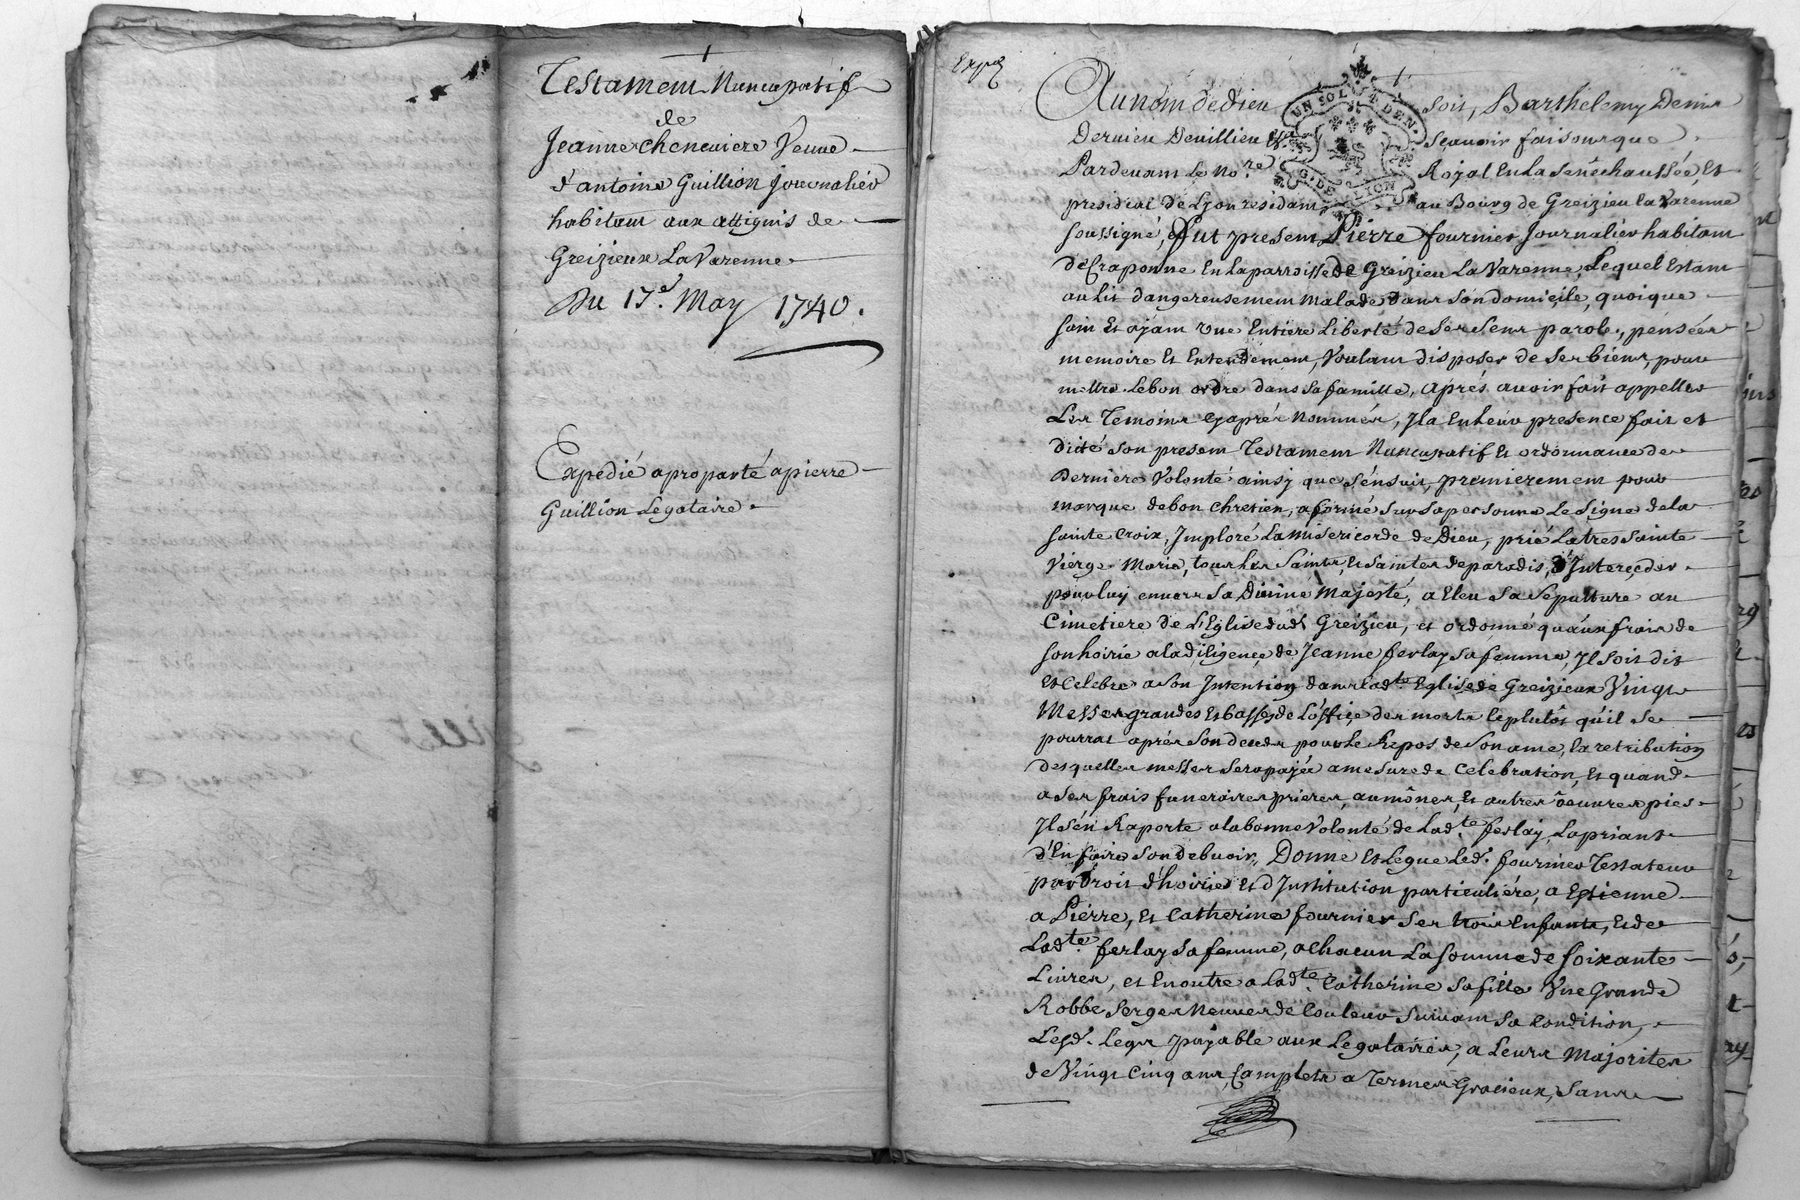 Testament Nuncupatif
de
Jeanne Cheneviere Veuve
d'antoine Guillion Journaliér
habitant aux attignis de
Greizieux LaVarenne.
Du 17e. May 1740.
Expedié aproparté apierre
Guillion Legataire.
Expé
Au nom de Dieu soit, Barthelemy Denis
Dervieu Devillieu Sçavoir faisons que
Pardevant Le Nore Royal En la Senéchaussée, Et
presidial de Lyon residant au Bourg de Greizieu la Varenne
soussigné, Fut present Pierre fournier Journaliér habitant
de Craponne En laparroisse de Greizieu La Varenne, Lequel Estant
au lit dangereusement malade dans son domicile, quoique
sain Et ayant vne Entiere Liberté de ses sens parole, pensées
memoire Et Entendement, Voulant disposer de ses biens, pour
mettre Lebon ordre dans sa famille, Aprés avoir fait appeller
Les Temoins Cyaprés Nommés, Jla En Leur presence fait et
dicté son present Testament Nuncupatif Et ordonnance de
Derniere Volonté ainsy que s'énsuit, premierement pour
marque de bon Chretien, a formé sur sa personne Le signe de la
sainte Croix, Jmploré La misericorde de Dieu, prié La tres sainte
Vierge Marie, tous Les Saints, Et Saintes de paradis, d'Interçeder
pour luy envers sa Divine Majesté, a Eleu sa sépulture au
Cimetiere de L'Eglise dudt Greizieu, et ordonné qu'aux frais de
son hoirie ala diligençe de Jeanne ferlay sa femme, Jl soit dit
Et Celebre a son Jntention dans Ladte Eglise de Greizieux Vingt
Messes grandes Et basses de L'office des morts le plutôt qu'il se
pourrat aprés son deceds pour Le Repos de son ame, la retribution
desquelles messes sera payée a mesure de Celebration, Et quand
a ses frais funeraires prieres, aumônes, Et autres oeuvres pies
Jl s'én Raporte ala bonne Volonté de Ladte ferlay, La priant
d'En faire son debvoir, Donne Et Legue Led. fournier Testateur
par Droit d'hoirie Et d'Jnstitution particuliére, a Estienne
a Piérre, Et Catherine fournier ses trois Enfants, Et de
Ladte ferlay sa femme, a Chacun La somme de soixante
Livres, et En outre a Ladte Catherine sa fille Vne Grande
Robbe serges Neuves de Couleur suivant sa Condition,
Lesd. Legs payable aux Legataires, a Leurs Majorites
de Vingt Cinq ans Complets a Termes Gracieux, sans
UN SOL 4 DEN.
G. DE LYON